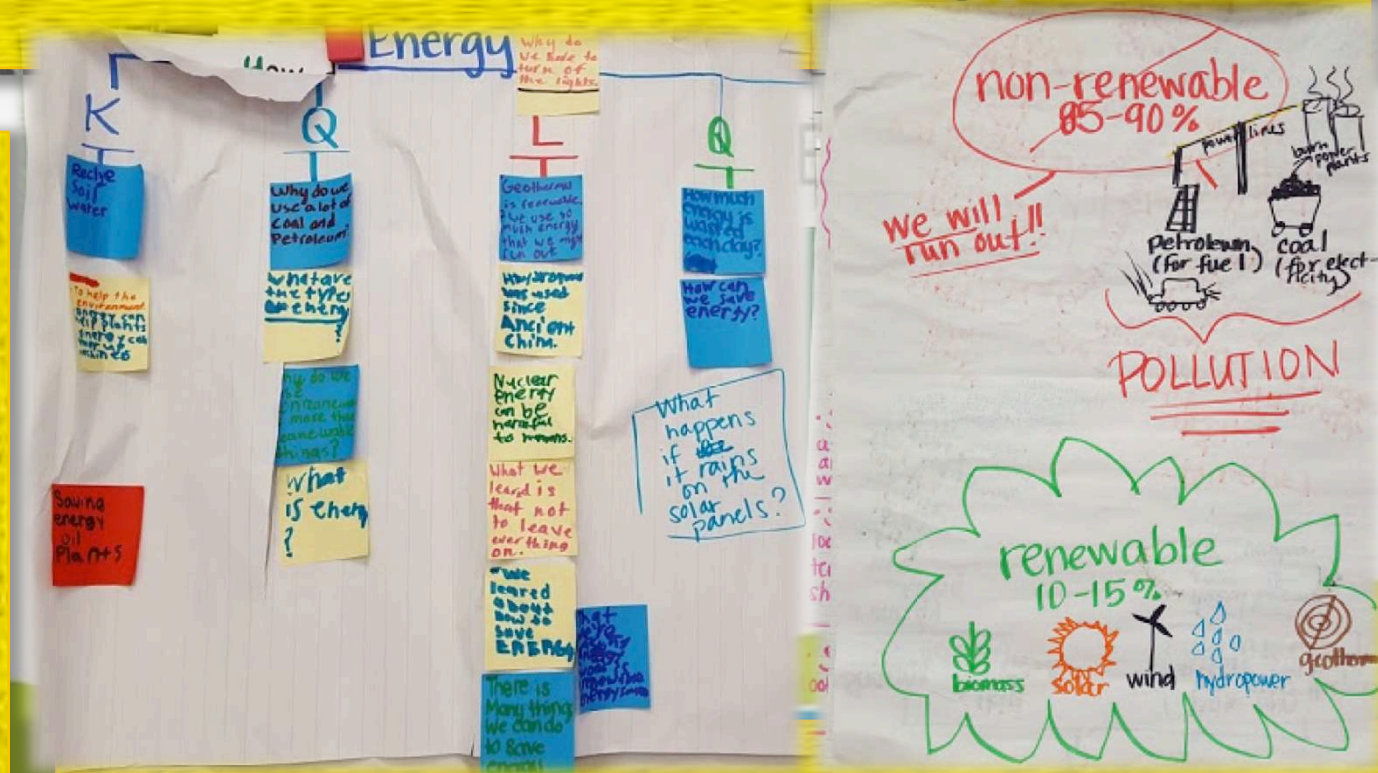 How
Energy
Why do
we have to
turn of
the lights.
K
Reclye
Soil
water
To help the
environment
energy can
help plants
energy can
power up
machines
Saving
energy
oil
Plants
Q
Why do we
use a lot of
coal and
Petroleum?
What are
the types
energy
?
why do we
use
nonrenewable
more than
renewable
things?
What
is energy
?
L
Geothermal
is renewable.
we use so
much energy
that we might
run out
was used
since
Ancient
China.
Nuclear
energy
can be
harmful
to humans.
What we
leared is
that not
to leave
everthing
on.
"We
leared
about
how to
save
ENERGY
There is
Many things
we can do
to save
energy!
Q
How much
energy is
wasted
each day?
How can
we save
energy?
What
happens
if
it rains
on the
solar
panels?
non-renewable
85-90%
we will
run out!!
power lines
burn
power
plants
petroleum
(for fuel)
coal
(for elect-
ricity)
POLLUTION
renewable
10-15%
biomass
solar
wind
hydropower
geotherm